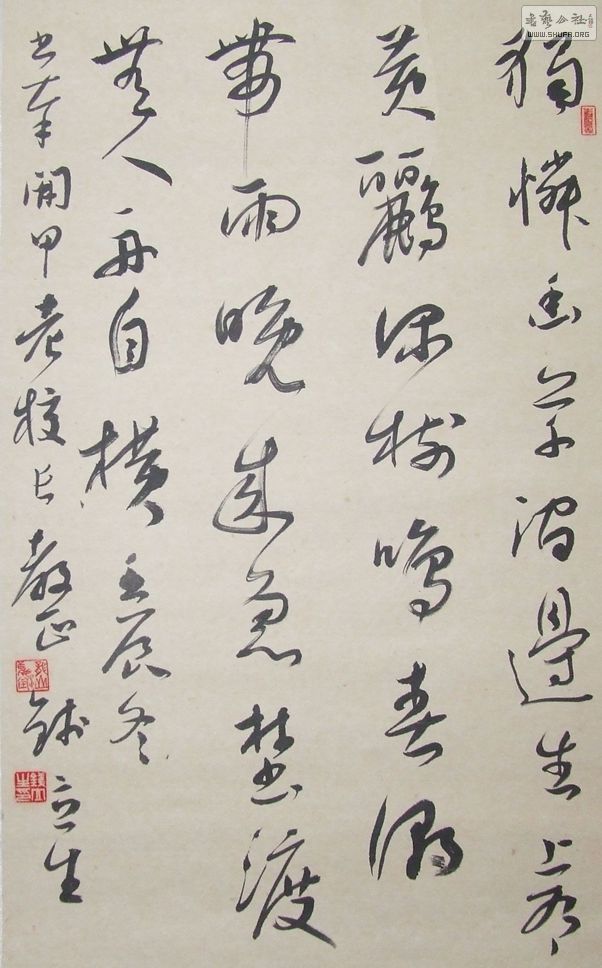 書藝公社
WWW.SHUFA.ORG
獨憐幽草澗邊生上有
黃鸝深樹鳴春潮
帶雨晚來急埜渡
無人舟自橫壬辰冬
書奉開甲老校長教正錢立生